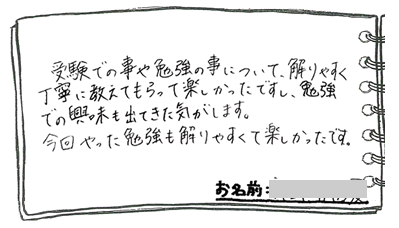 受験での事や勉強の事について、解りやすく
丁寧に教えてもらって楽しかったですし、勉強
での興味も出てきた気がします。
今回やった勉強も解りやすくて楽しかったです。
お名前: